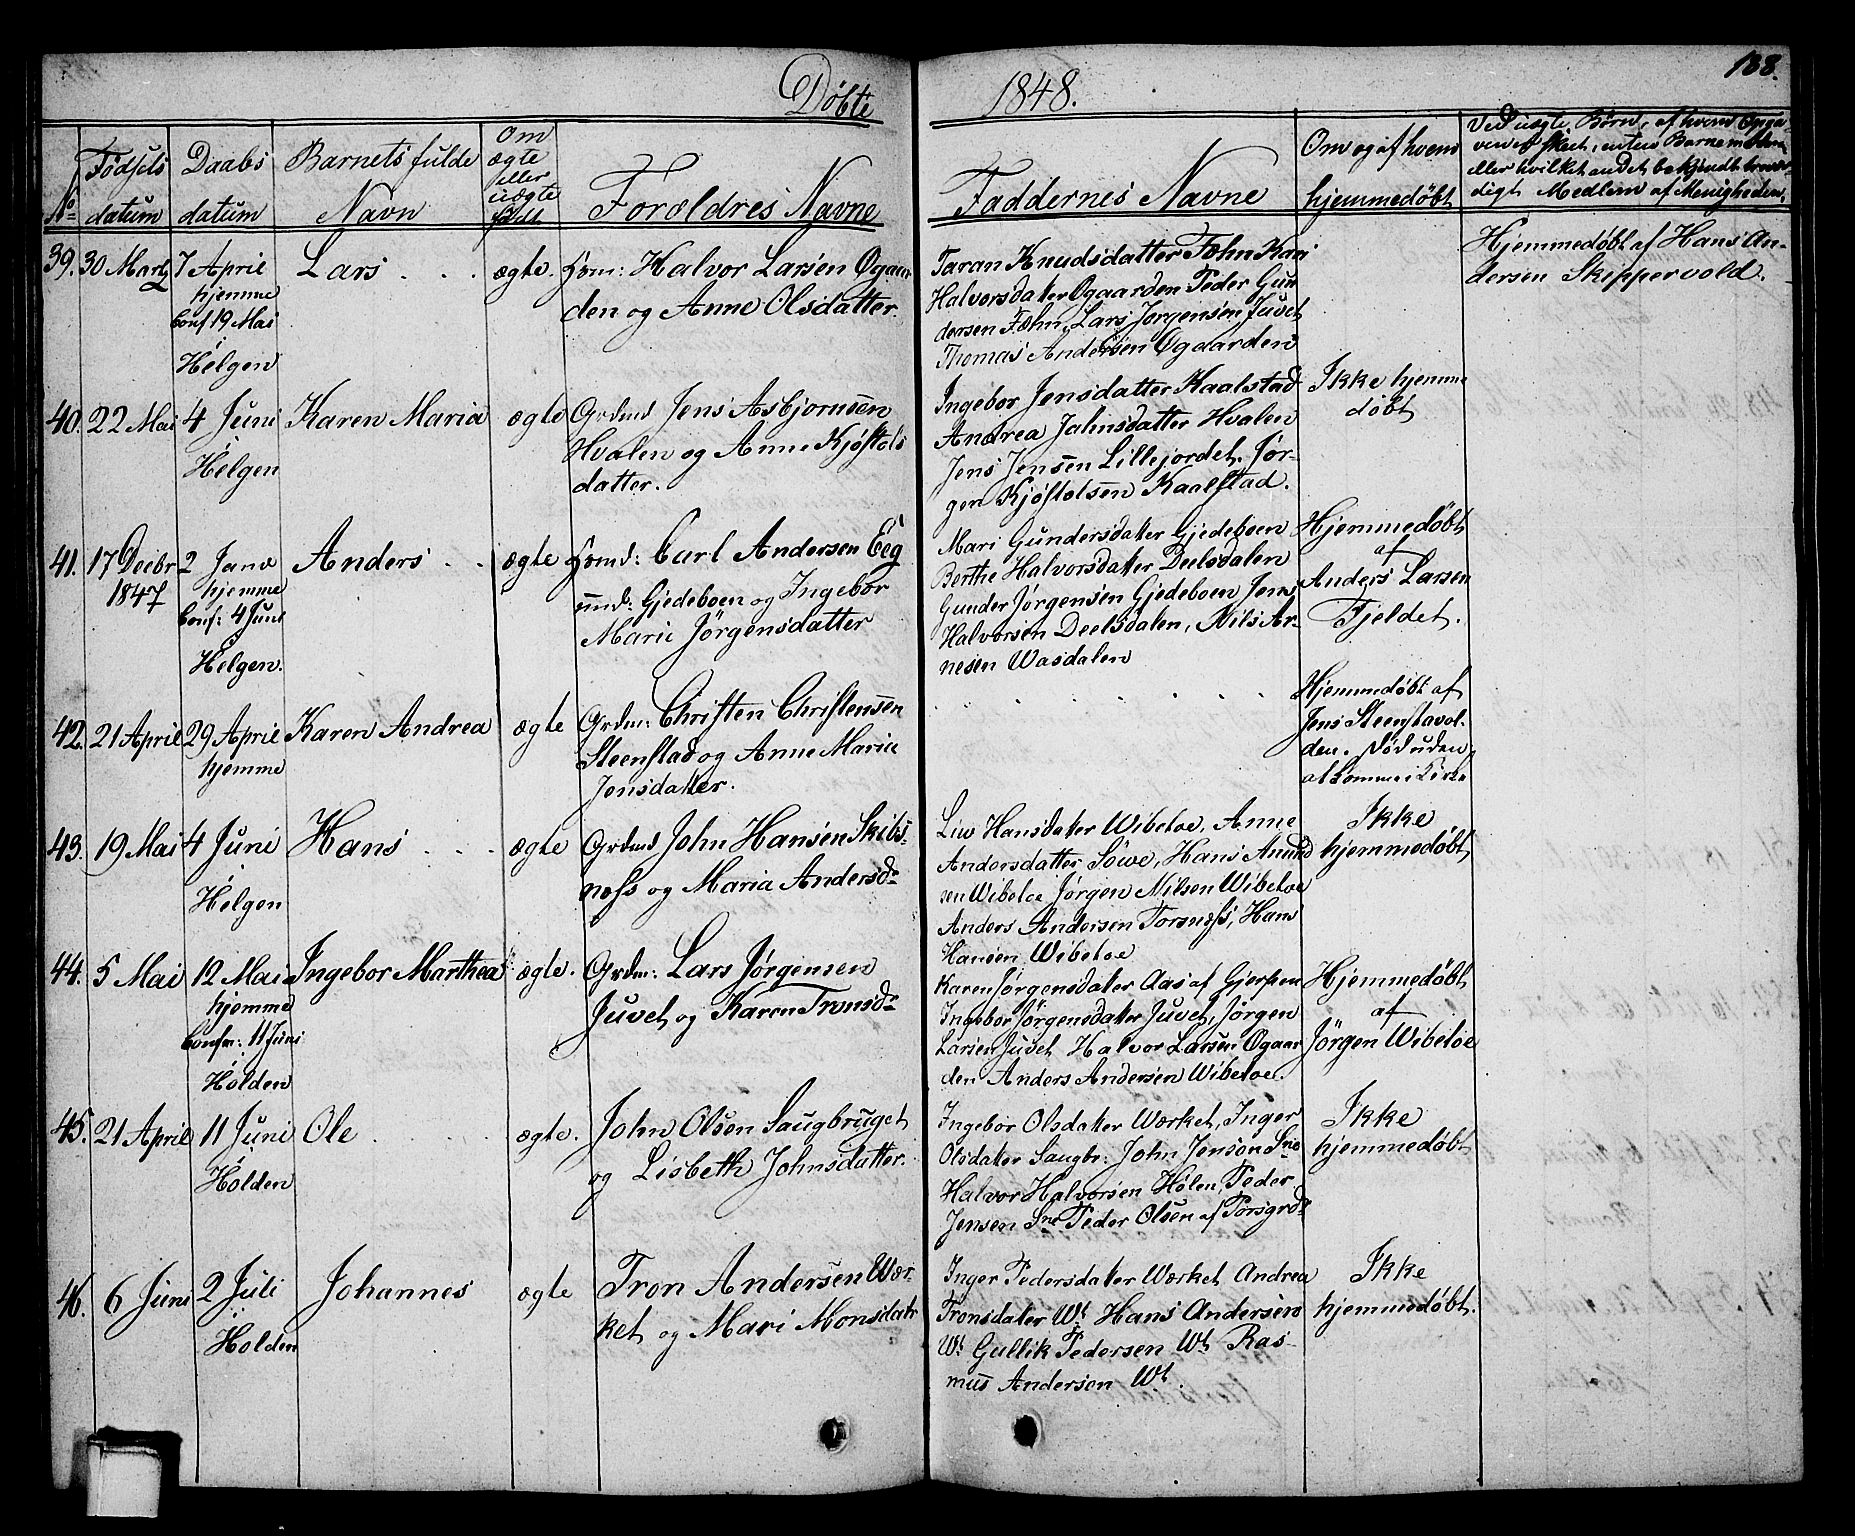 Døbte 1848. 188.
No
Fødsels
datum
Daabs
datum
Barnets fulde
Navn
Om
ægte
eller
uægte
født
Forældres Navne
Faddernes Navne
Om og af hvem
hjemmedøbt
Ved uægte Børn, af hvem Opga-
ven er skeet, enten Barnemoderen
eller hvilket andet bekjendt trovær-
digt Medlem af Menigheden.
39. 30 Marts
7 April
hjemme
Conf 19 Mai
Helgen
Lars
ægte.
Huusm: Halvor Larsen Øgaar-
den og Anne Olsdatter.
Taran Knudsdatter Fæhn Kari
Halvorsdater Øgaarden Peder Gun
dersen Fæhn, Lars Jørgensen Juvet
Thomas Andersen Øgaarden
Hjemmedøbt af Hans An-
dersen Skippervold.
40. 22 Mai
4 Juni
Helgen
Karen Maria
ægte
Grdmd Jens Asbjørnsen
Hvalen og Anne Kjøstols
datter.
Ingebor Jensdatter Kaalstad
Andrea Jahnsdatter Hvalen
Jens Jensen Lillejordet. Jør-
gen Kjøstolsen Kaalstad.
Ikke hjemme
døbt
41. 17 Decbr
1847
2 Janr
hjemme
Conf: 4 Juni
Helgen.
Anders
ægte
Huusmd: Carl Andersen Eeg
und: Gjedeboen og Ingebor
Marie Jørgensdatter
Mari Gundersdater Gjedeboen
Berthe Halvorsdater Deelsdalen
Gunder Jørgensen Gjedeboen Jens
Halvorsen Deelsdalen, Nils Ar-
nesen Wasdalen
Hjemmedøbt
af
Anders Larsen
Fjeldet.
42. 21 April
29 April
hjemme
Karen Andrea
ægte
Grdm: Christen Christensen
Steenstad og Anne Marie
Jensdatter.
Hjemmedøbt af
Jens Steenstavol-
den. Død uden
at komme i Kirke
43. 19 Mai
4 Juni
Helgen
Hans
ægte
Grdmd John Hansen Skibs-
næss og Maria Andersdr
Liw Hansdater Wibetoe, Anne
Andersdatter Søwe, Hans Amund
sen Wibetoe Jørgen Nilsen Wibetoe
Anders Andersen Torsnæss, Hans
Hansen Wibetoe
Ikke
hjemmedøbt,
44. 5 Mai
12 Mai
hjemme
Confm: 11 Juni
Holden
Ingebor Marthea
ægte.
Grdm: Lars Jørgensen
Juvet og Karen Tronsdr
Karen Jørgensdater Aas af Gjerpen
Ingebor Jørgensdater Juvet, Jørgen
Larsen Juvet Halvor Larsen Øgaar
den Anders Andersen Wibetoe.
Hjemmedøbt
af
Jørgen Wibetoe
45. 21 April
11 Juni
Holden
Ole
ægte.
John Olsen Saugbruget
og Lisbeth Johnsdatter.
Ingebor Olsdater Wærket, Inger
Olsdater Saugbr: John Jensen Sne
Halvor Halvorsen Holen, Peder
Jensen Sne Peder Olsen af Porsgrd
Ikke
hjemmedøbt
46. 6 Juni
2 Juli
Holden
Johannes
ægte
Tron Andersen Wær-
ket og Mari Monsdatr
Inger Pedersdater Wærket Andrea
Tronsdater Wt Hans Andersen
Wt Gullik Pedersen Wt Ras-
mus Andersen Wt.
Ikke
hjemmedøbt.